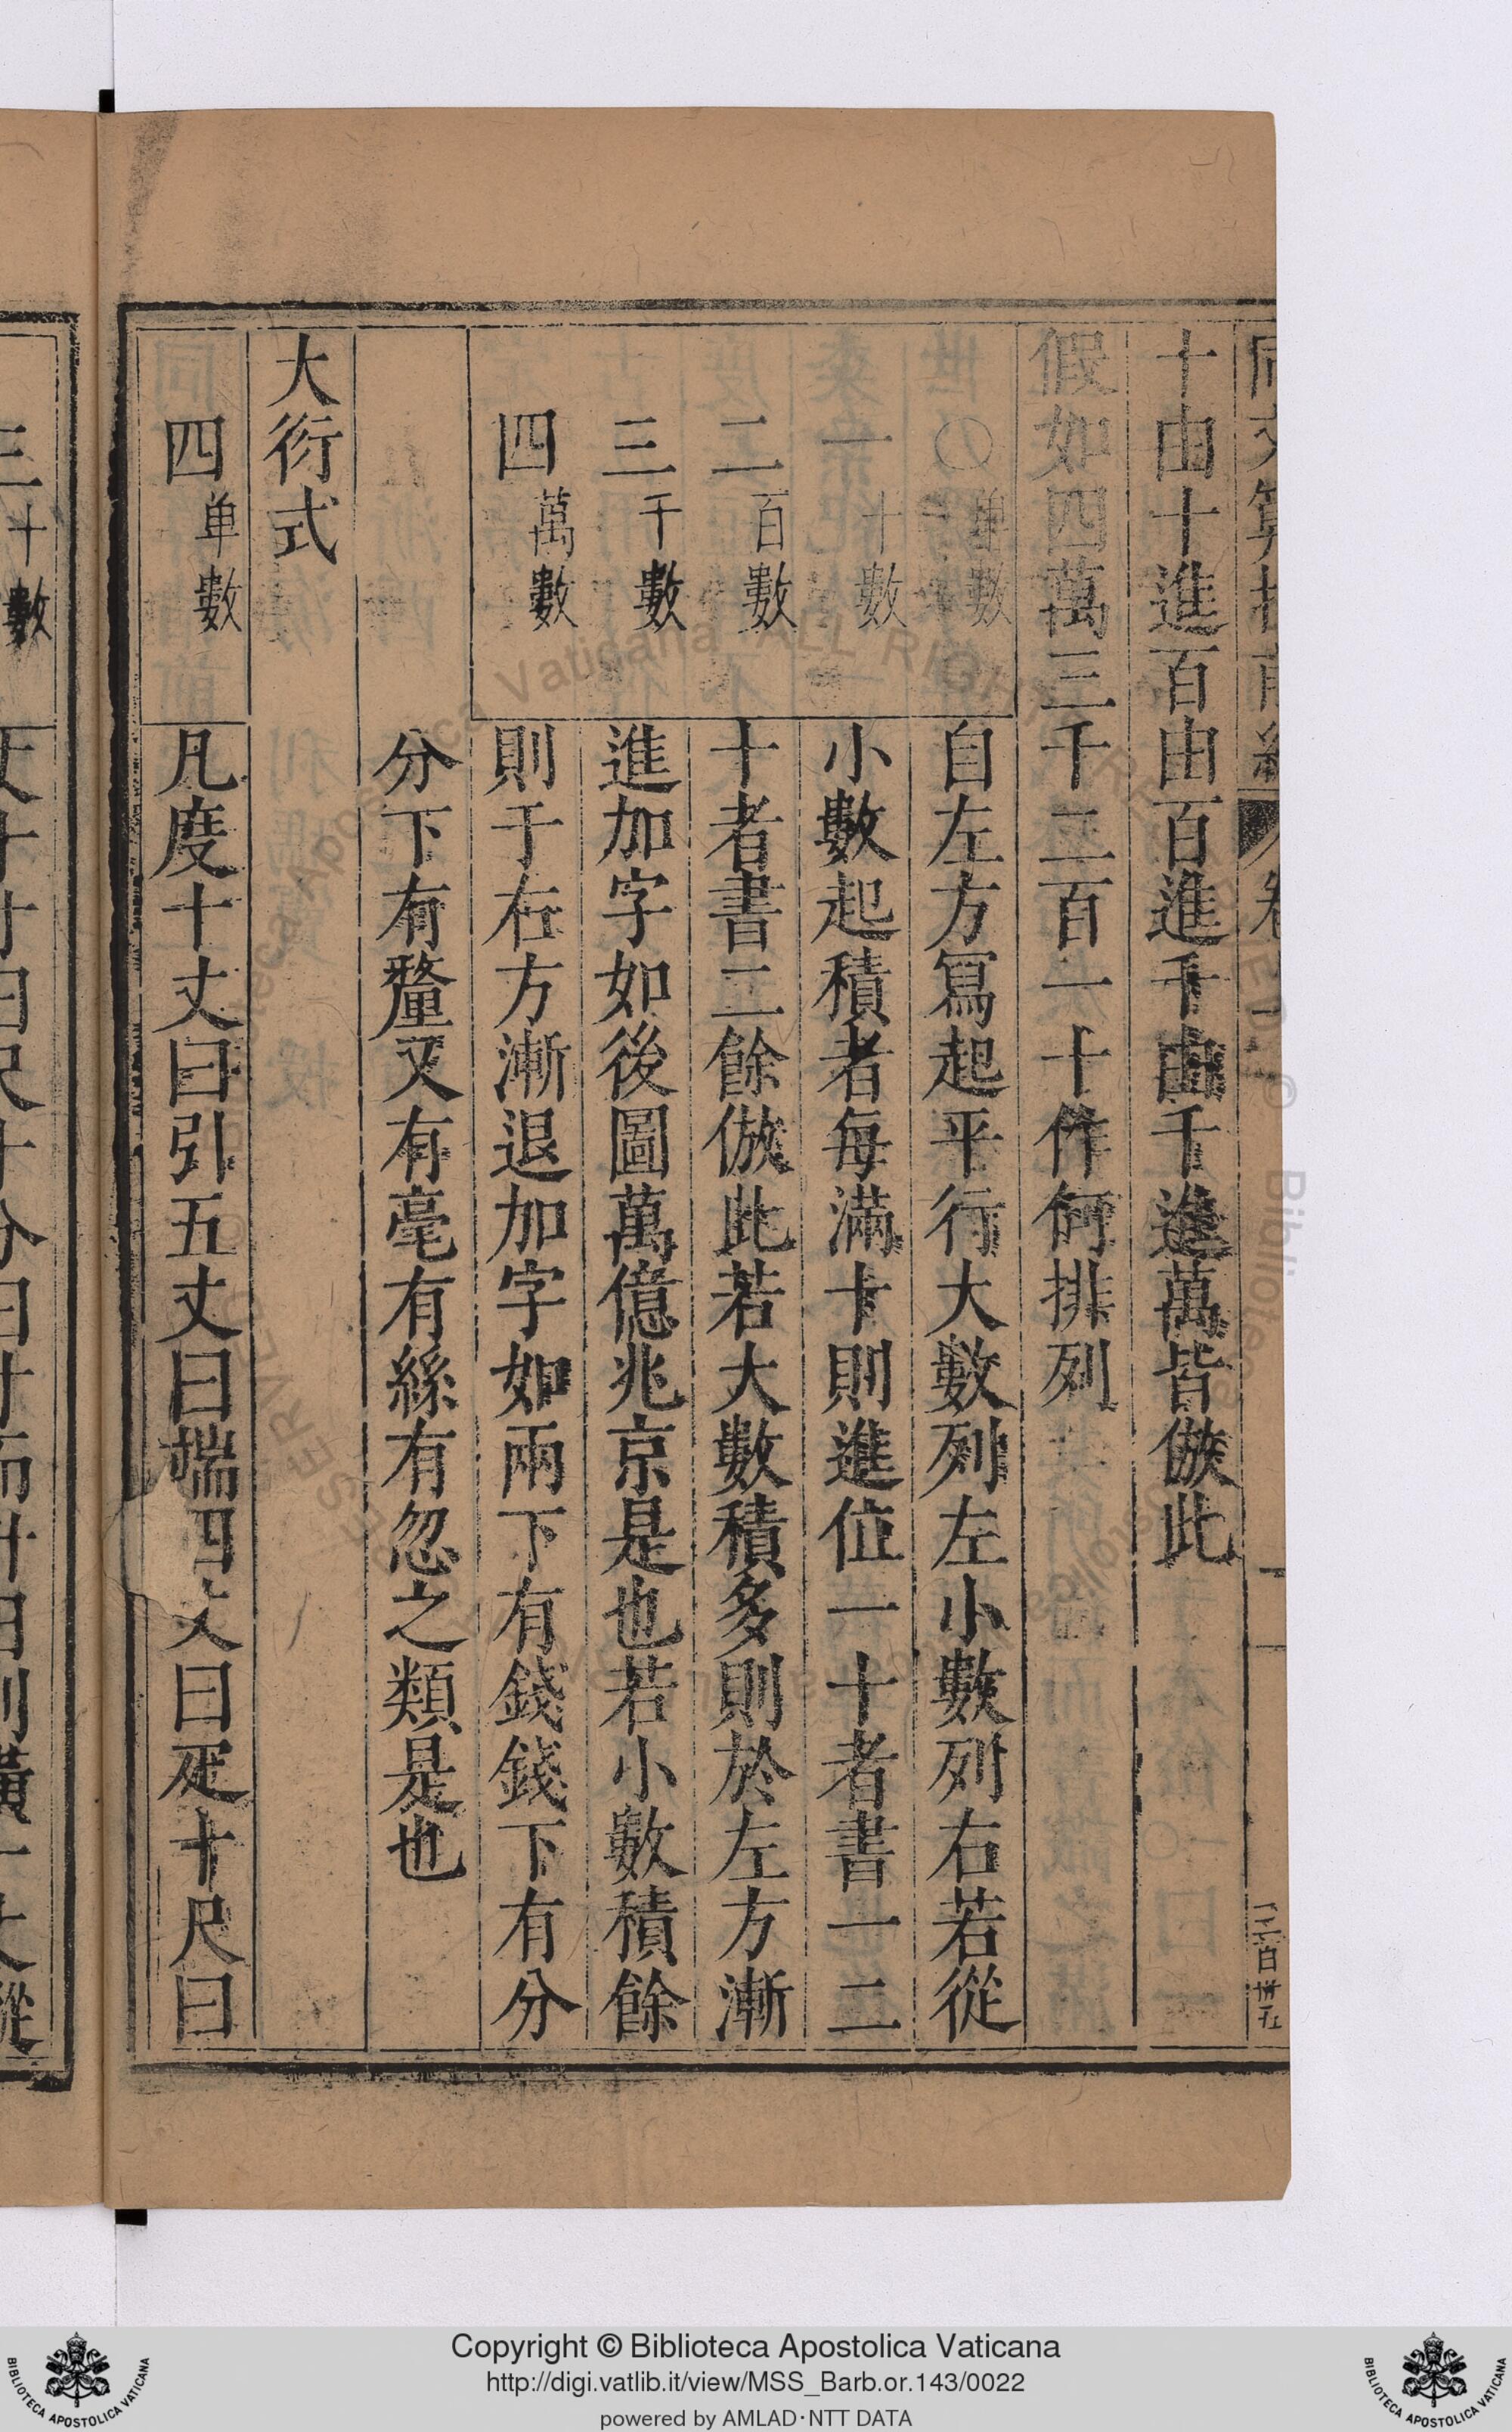 十由十進百由百進千由千進萬皆倣此
假如四萬三千二百一十作何排列
〇單數
一十數
二百數
三千數
四萬數
自左方寫起平行大數列左小數列右若從
小數起積者每滿十則進位一十者書一二
十者書二餘倣此若大數積多則於左方漸
進加字如後圖萬億兆京是也若小數積餘
則于右方漸退加字如兩下有錢錢下有分
分下有釐又有毫有絲有忽之類是也
大衍式
四單數
凡度十丈曰引五丈曰端四丈曰疋十尺曰
三十數
Copyright © Biblioteca Apostolica Vaticana
http://digi.vatlib.it/view/MSS_Barb.or.143/0022
powered by AMLAD·NTT DATA
BIBLIOTECA APOSTOLICA VATICANA
BIBLIOTECA APOSTOLICA VATICANA